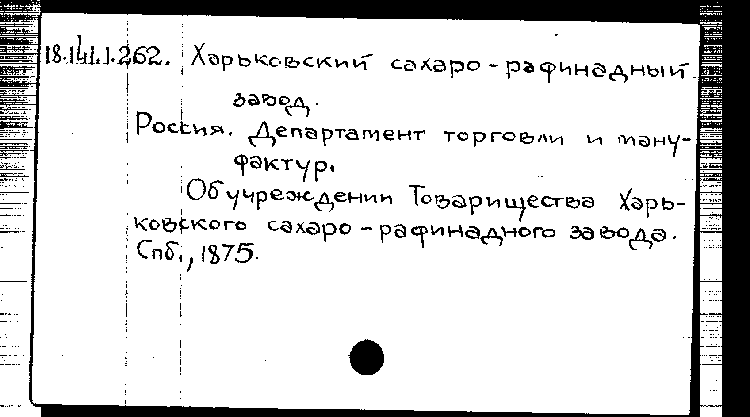 18.141.1.262. Харьковский сахаро-рафинадный
завод.
Россия. Департамент торговли и ману-
фактур.
Об учреждении Товарищества Харь-
ковского сахаро-рафинадного завода.
Спб., 1875.